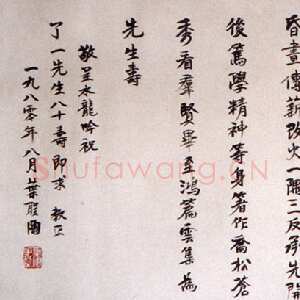 昏晝傳薪改火一隅三反承先開
後篤學精神等身著作喬松蒼
秀看羣賢畢至鴻篇雲集為
先生壽
敬呈水龍吟祝
了一先生八十壽即求 教正
一九八零年八月葉聖陶
Shufawang.cn